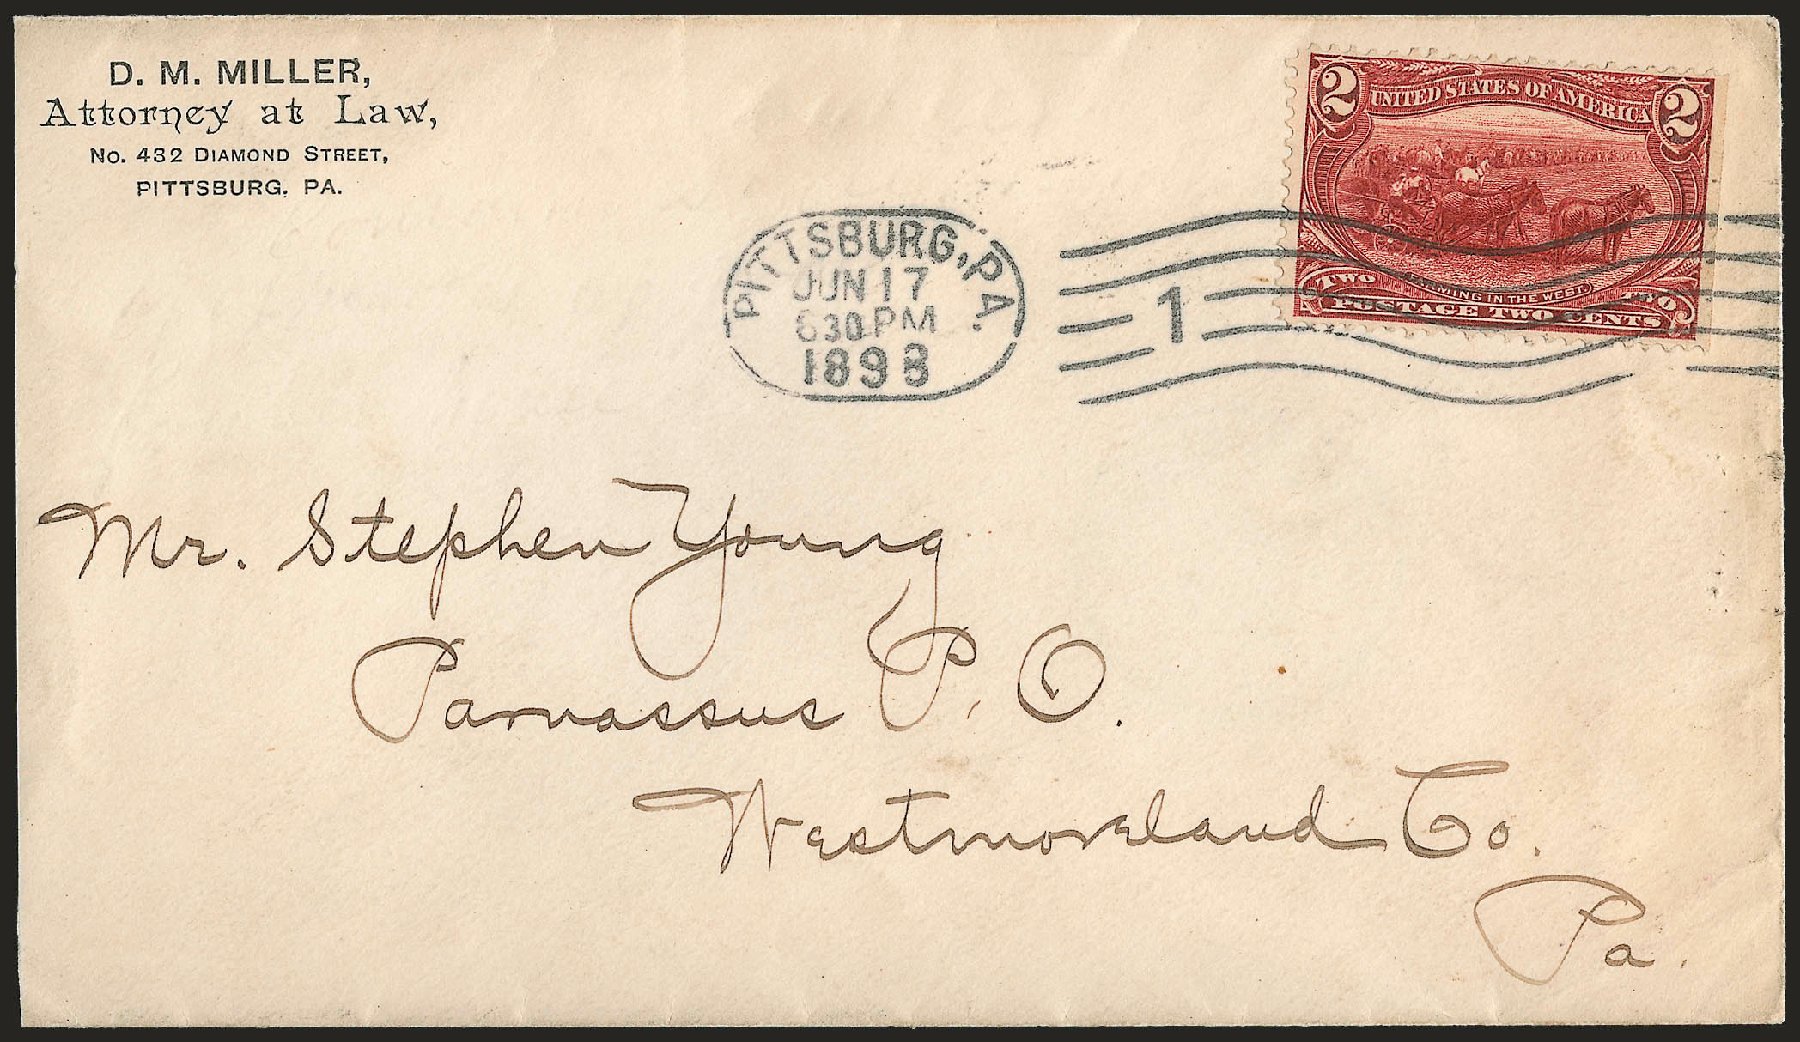 D. M. MILLER,
Attorney at Law,
No. 432 DIAMOND STREET,
PITTSBURG, PA.
2 UNITED STATES OF AMERICA 2
FARMING IN THE WEST.
TWO TWO
POSTAGE TWO CENTS
PITTSBURG, PA.
JUN 17
630 PM
1898
1
Mr. Stephen Young
Parnassus P. O.
Westmoreland Co.
Pa.